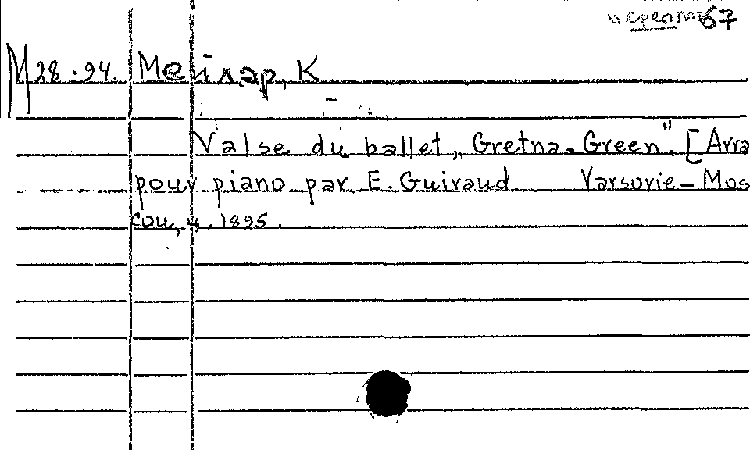 67
M 28.94. Мейлар, К
Valse du ballet „Gretna-Green" [Arra
pour piano par E. Guiraud Varsovie-Mos
cou, 4. 1895.